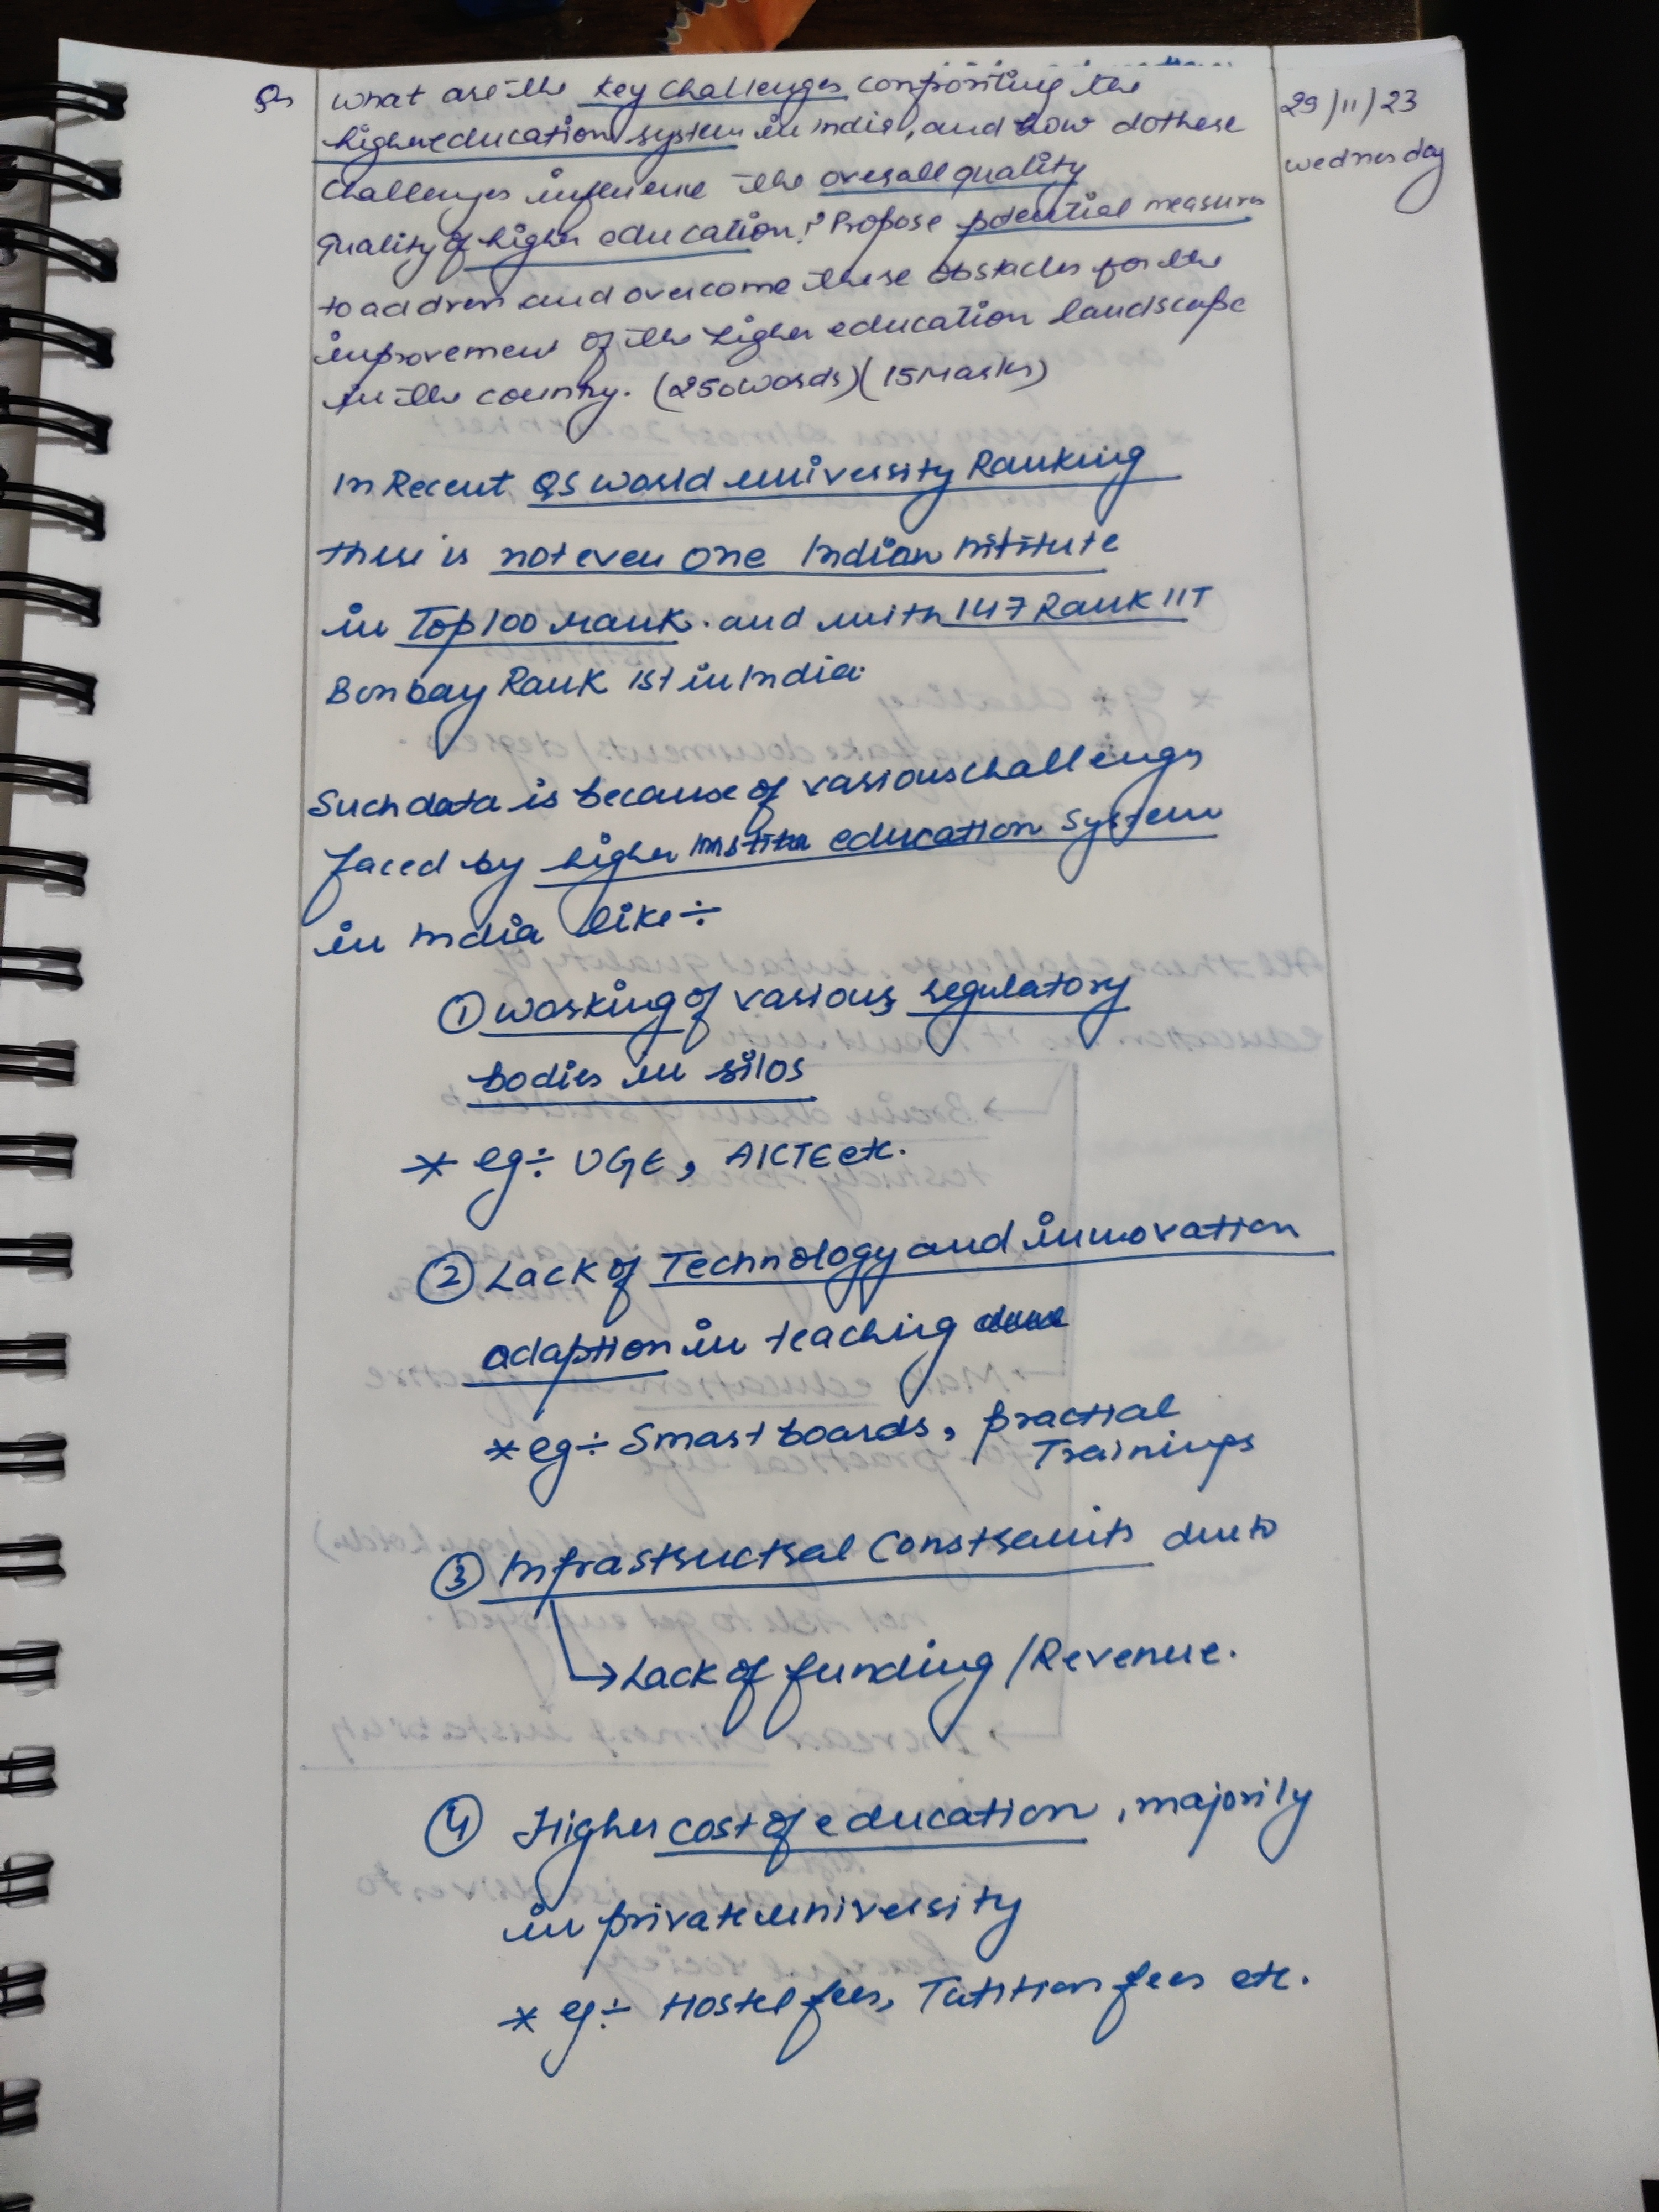 Qn what are the key challenges confronting the
higher education system in India, and how do these
challenges influence the overall quality
quality of higher education? Propose potential measures
to address and overcome these obstacles for the
improvement of the higher education landscape
in the country. (250 words) (15 Marks)
29/11/23
wednesday
In Recent QS world university Ranking
there is not even one Indian Intitute
in Top 100 rank. and with 147 Rank IIT
Bombay Rank 1st in India.
Such data is because of various challenges
faced by higher education system
in India like÷
① working of various regulatory
bodies in silos
* eg÷ UGC, AICTE etc.
② Lack of Technology and innovation
adaption in teaching
* eg÷ Smart boards, practial
Trainings
③ Infrastructral Constraints due to
→ Lack of funding / Revenue.
④ Higher cost of education, majority
in private university
* eg÷ Hostel fees, Tutition fees etc.